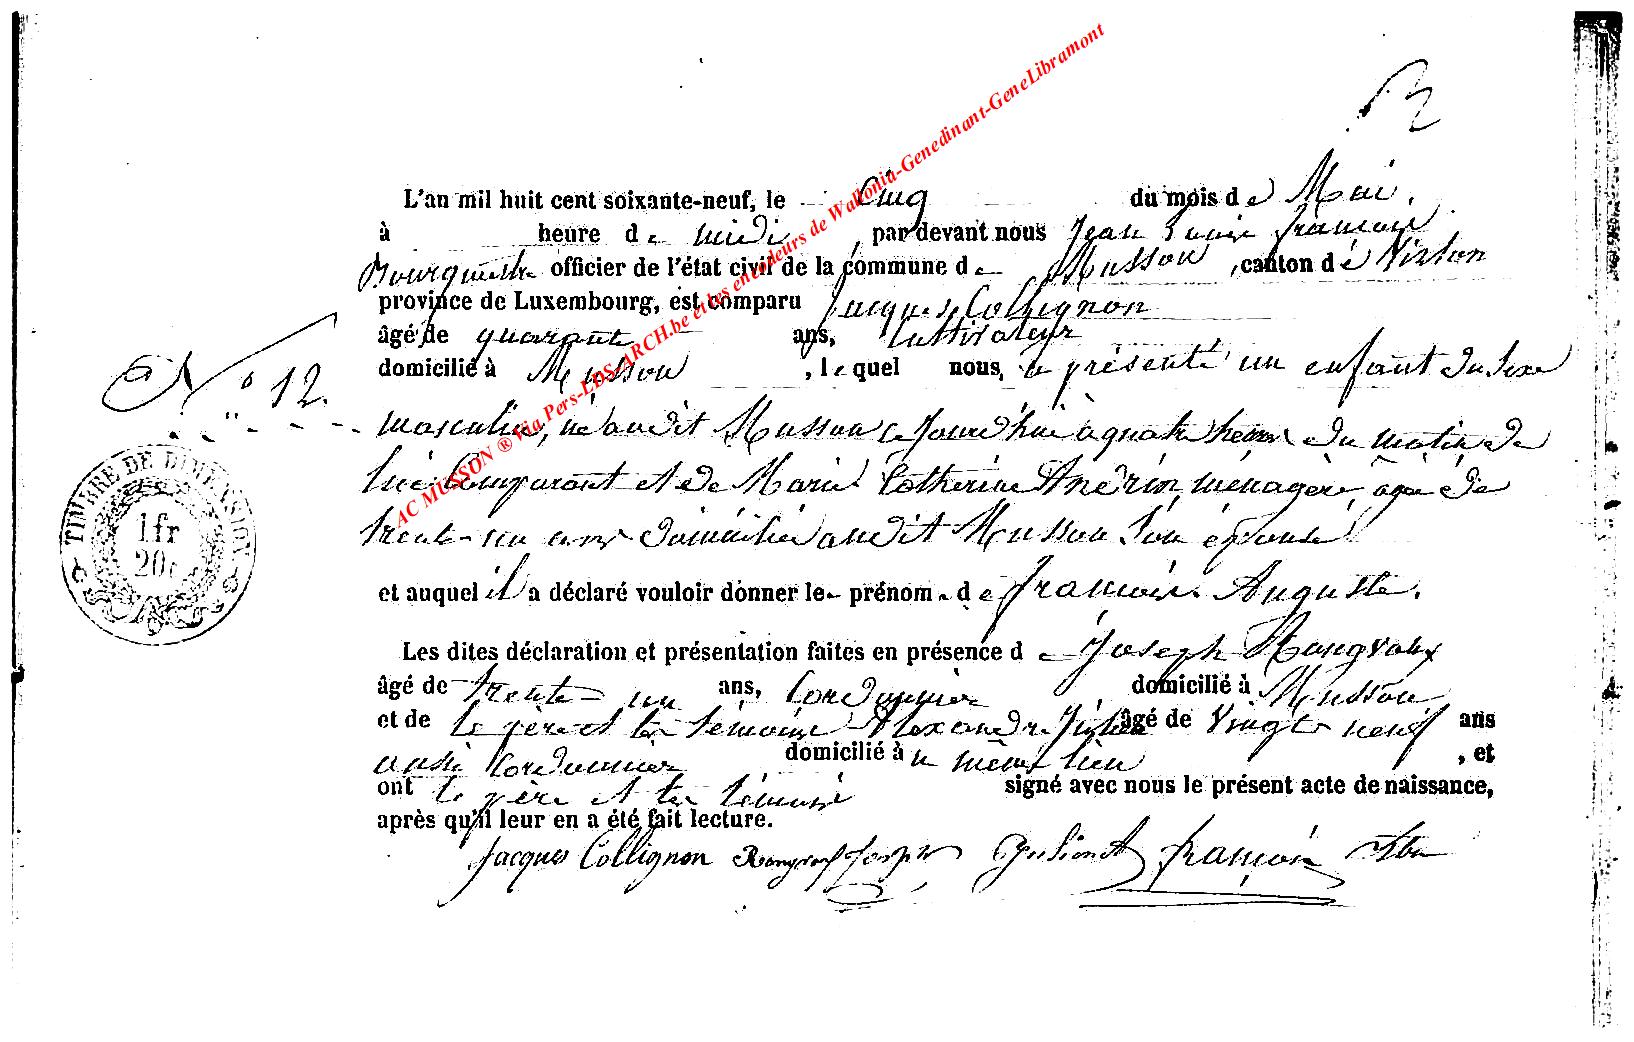 L'an mil huit cent soixante-neuf, le Cinq du mois de Mai,
à heure de midi, par devant nous Jean Louis françois
officier de l'état civil de la commune de Musson, canton de Virton
province de Luxembourg, est comparu Jacques Collignon
âgé de quarante ans, Cultivateur
N° 12.
domicilié à Musson, lequel nous, a présenté un enfant du sexe
masculin, né audit Musson ce jourd'hui à quatre heures du matin de
lui Comparant et de Marie Catherine ménagère, agée de
trente-un ans domiciliée audit Musson Son épouse
TIMBRE DE DIMENSION
1 fr
20 c
et auquel il a déclaré vouloir donner le prénom de françois Auguste.
Les dites déclaration et présentation faites en présence de Joseph Rongvaux
âgé de trente-un ans, Cordonnier domicilié à Musson
et de le père et les témoins Alexandre âgé de Vingt neuf ans
aussi Cordonnier domicilié à même lieu, et
ont le père et les témoins signé avec nous le présent acte de naissance,
après qu'il leur en a été fait lecture.
Jacques Collignon Joseph françois
AC MUSSON ® Via Pers-LDS-ARCH.be et les encodeurs de Wallonia-Genedinant-GeneLibramont